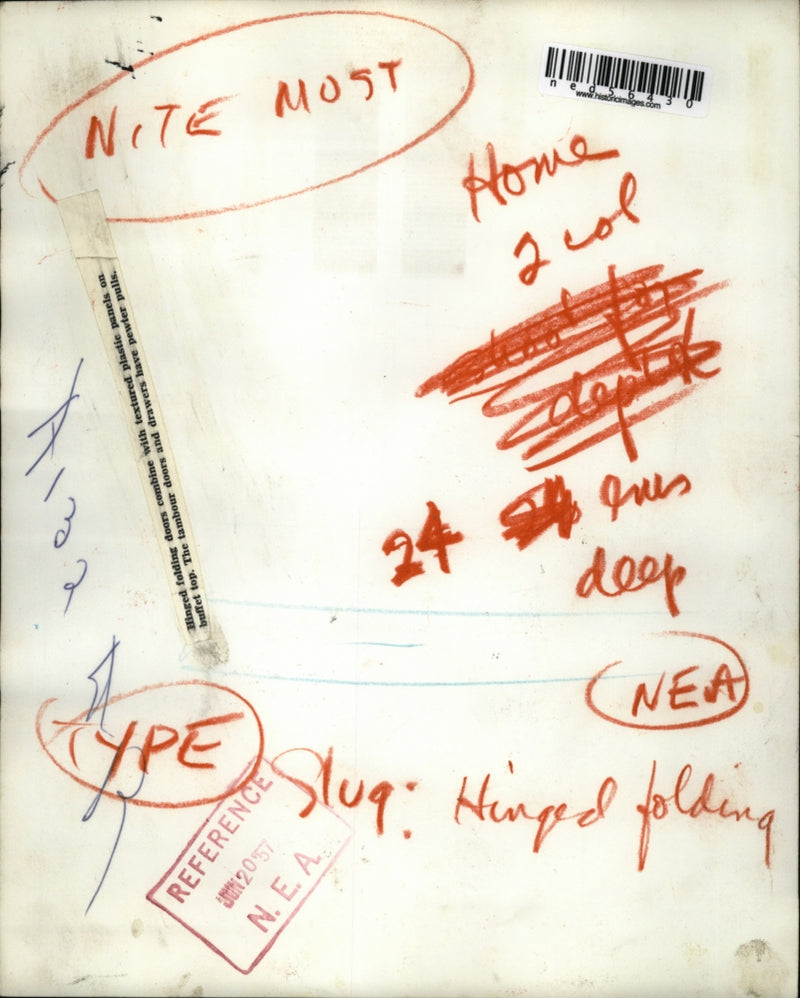 NiTE MOST
ned56430
www.historicimages.com
Home
2 col
deptok
24 ems
deep
Hinged folding doors combine with textured plastic panels on
buffet top. The tambour doors and drawers have pewter pulls.
NEA
TYPE
Slug: Hinged folding
REFERENCE
JUN 20 '57
N. E. A.